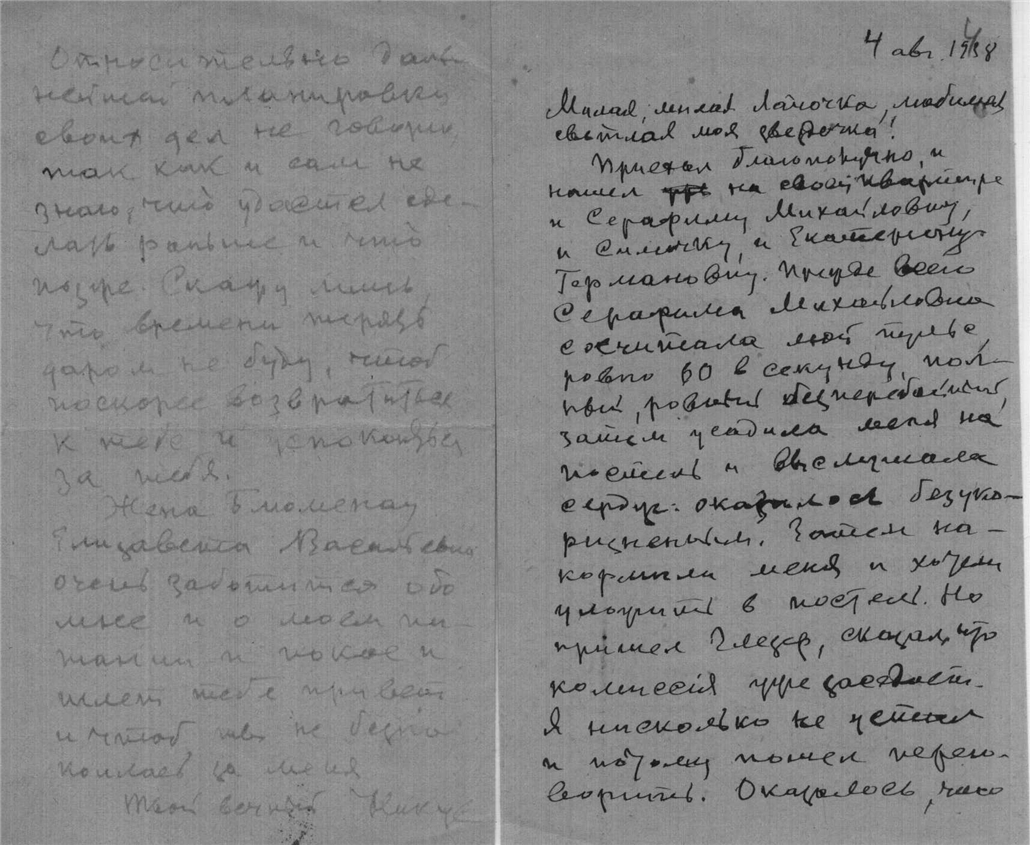 4 авг. 1938
Милая, милая Лапочка, любимая
светлая моя звездочка!
Приехал благополучно, и
нашел на своей квартире
и Серафиму Михайловну,
и Симочку, и Екатерину
Германовну. Прежде всего
Серафима Михайловна
сосчитала мой пульс,
ровно 60 в секунду, пол-
ный, ровный безперебойный,
затем усадила меня на
постель и выслушала
сердце: оказалось безуко-
ризненным. Затем на-
кормили меня и хотели
уложить в постель. Но
пришел Глезер, сказал, что
комиссия уже заседает.
Я нисколько не устал
и потому пошел перего-
ворить. Оказалось, что
Относительно даль-
нейшей планировки
своих дел не говорю,
так как и сам не
знаю, что удастся сде-
лать раньше и что
позже. Скажу лишь,
что времени терять
даром не буду, чтоб
поскорее возвратиться
к тебе и успокоиться
за тебя.
Жена Блюменау
Елизавета Васильевна
очень заботится обо
мне и о моем пи-
тании и покое и
шлет тебе привет
и чтоб ты не безпо-
коилась за меня
Твой вечный Никус